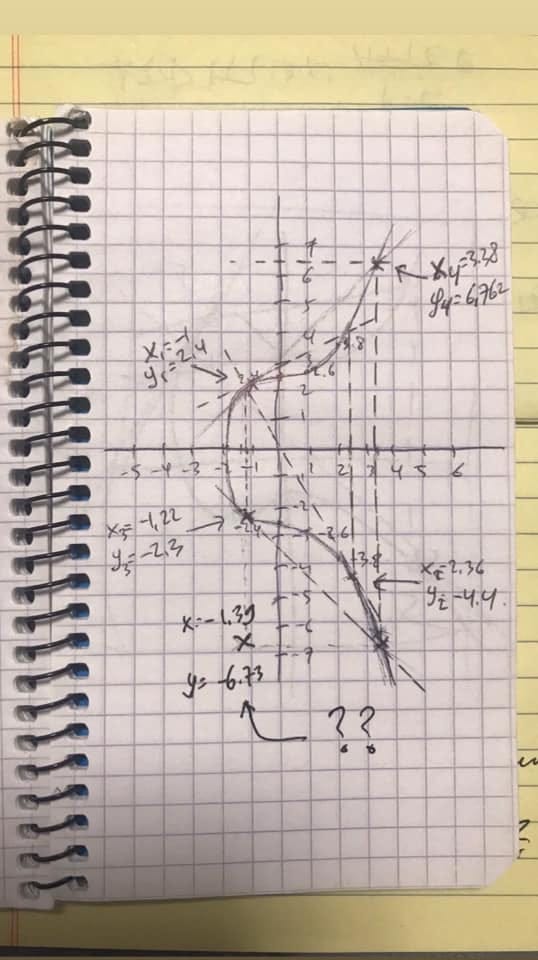 7
6
5
4
3
2
1
x4=3.38
y4=6,762
x1=-1
y1=2,4
3.8
2.6
-5 -4 -3 -2 -1 1 2 3 4 5 6
-1
-2
-4
-5
-6
-7
-2.4
-2.6
-3.8
x3=-1,22
y3=-2.3
x2=2.36
y2=-4.4.
x=-1.39
x
y=-6.73
??